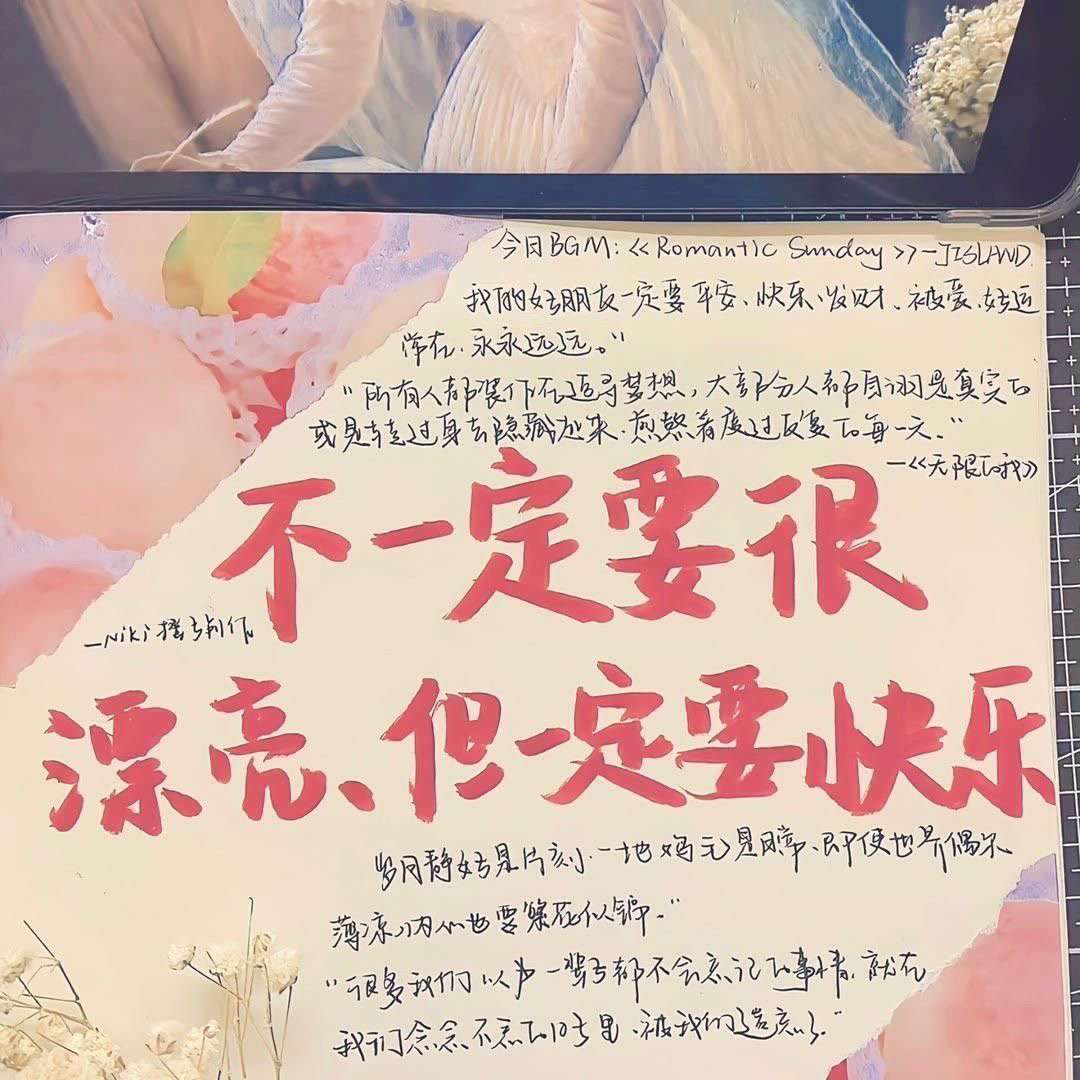 今日BGM:《Romantic Sunday》—JISLAND.
我的好朋友一定要平安、快乐、发财、被爱、好运
常在.永永远远。”
“所有人都装作在追寻梦想,大部分人都自诩是真实的
或是转过身去隐藏起来.煎熬着度过反复的每一天。”
—《无限的我》
不一定要很
—Niki 制作
漂亮、但一定要快乐
岁月静好是片刻.一地鸡毛是日常、即便世界偶尔
薄凉.内心也要繁花似锦。”
“很多我们以为一辈子都不会忘记的事情.就在
我们念念不忘的日子里、被我们遗忘了.”